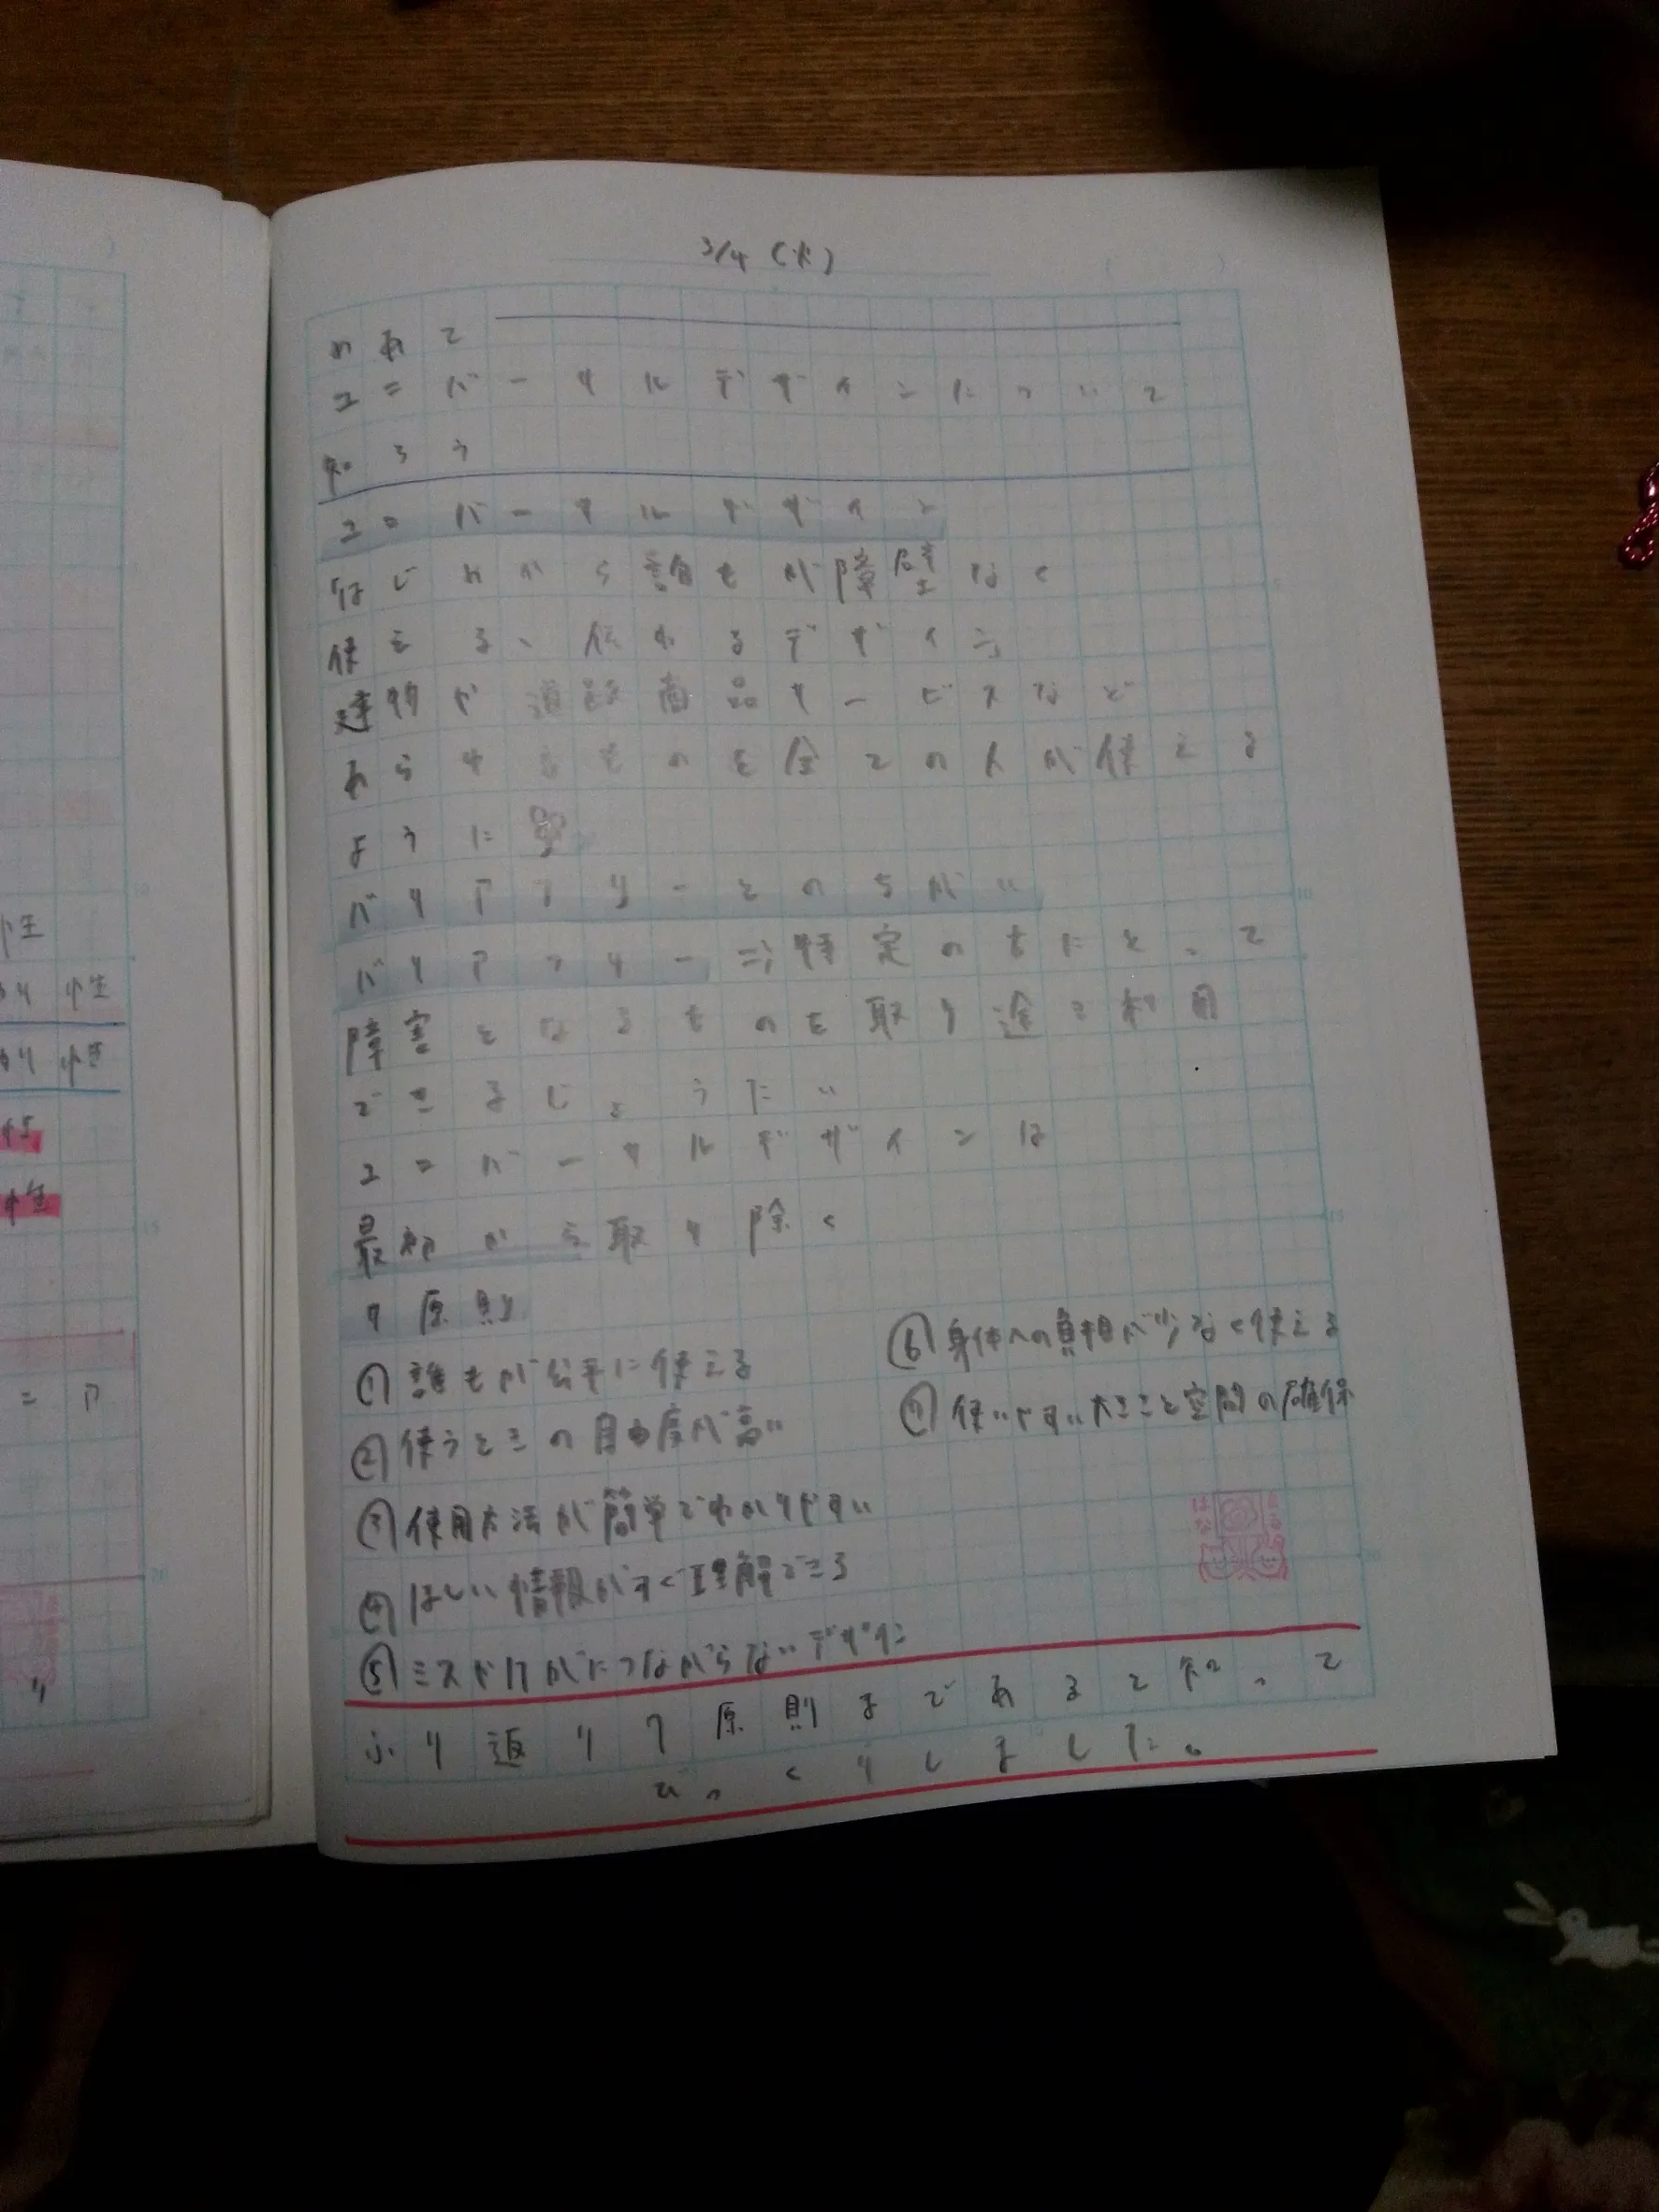 3/4 (火)
めあて
ユニバーサルデザインについて
知ろう
ユニバーサルデザイン
はじめから誰もが障壁なく
使える、伝わるデザイン
建物や道路商品サービスなど
あらゆるものを全ての人が使える
ように
バリアフリーとのちがい
バリアフリー⇒特定の方にとって
障害となるものを取り途き利用
できるじょうたい
ユニバーサルデザインは
最初から取り除く
7原則
①誰もが公平に使える
②使うときの自由度が高い
③使用方法が簡単でわかりやすい
④ほしい情報がすぐ理解できる
⑤ミスやけがにつながらないデザイン
⑥身体への負担が少なく使える
⑦使いやすい大きさと空間の確保
ふり返り7原則まであると知って
びっくりしました。
小生
小生
小生
小生
ニア